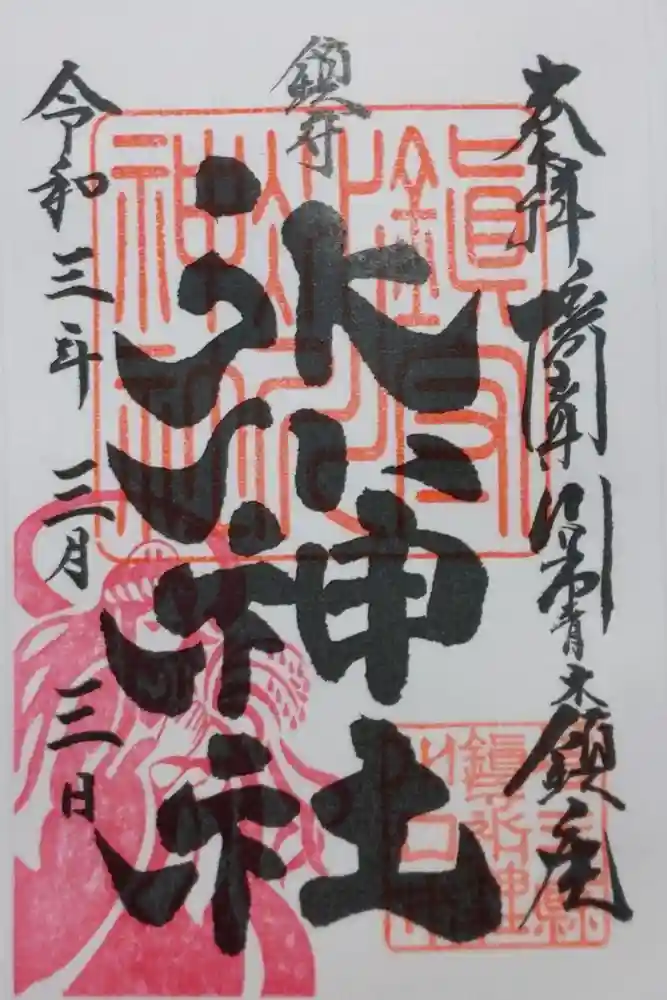 奉拝 青木鎮座
鎮守
氷川神社
令和三年三月三日
鎮守
氷川
神社